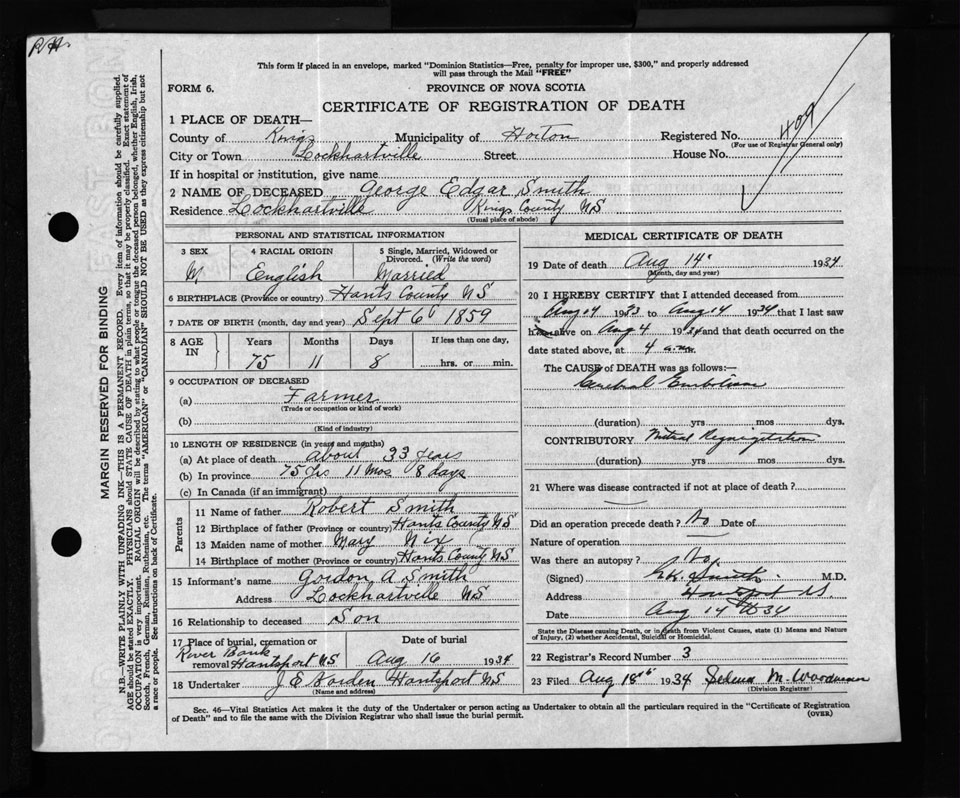 This form if placed in an envelope, marked "Dominion Statistics—Free, penalty for improper use, $300," and properly addressed
will pass through the Mail "FREE"
FORM 6.
PROVINCE OF NOVA SCOTIA
CERTIFICATE OF REGISTRATION OF DEATH
1 PLACE OF DEATH—
County of Kings Municipality of Horton Registered No. 409
(For use of Registrar General only)
City or Town Lockhartville Street House No.
If in hospital or institution, give name
2 NAME OF DECEASED George Edgar Smith
Residence Lockhartville Kings County NS
(Usual place of abode)
PERSONAL AND STATISTICAL INFORMATION
3 SEX 4 RACIAL ORIGIN 5 Single, Married, Widowed or
Divorced. (Write the word)
M English Married
6 BIRTHPLACE (Province or country) Hants County NS
7 DATE OF BIRTH (month, day and year) Sept 6 1859
8 AGE IN Years Months Days If less than one day,
75 11 8 hrs. or min.
9 OCCUPATION OF DECEASED
(a) Farmer
(Trade or occupation or kind of work)
(b)
(Kind of industry)
10 LENGTH OF RESIDENCE (in years and months)
(a) At place of death about 33 years
(b) In province 75 yrs 11 mos 8 days
(c) In Canada (if an immigrant)
Parents
11 Name of father Robert Smith
12 Birthplace of father (Province or country) Hants County NS
13 Maiden name of mother Mary Nix
14 Birthplace of mother (Province or country) Hants County NS
15 Informant's name Gordon A Smith
Address Lockhartville NS
16 Relationship to deceased Son
17 Place of burial, cremation or Date of burial
River Bank
removal Hantsport NS Aug 16 1934
18 Undertaker J E Borden Hantsport NS
(Name and address)
MEDICAL CERTIFICATE OF DEATH
19 Date of death Aug 14 1934
(Month, day and year)
20 I HEREBY CERTIFY that I attended deceased from
Aug 14 1933 to Aug 14 1934 that I last saw
h alive on Aug 4 1934 and that death occurred on the
date stated above, at 4 a.m.
The CAUSE of DEATH was as follows:—
Cerebral Embolism
(duration) yrs mos dys.
CONTRIBUTORY Mitral Regurgitation
(duration) yrs mos dys.
21 Where was disease contracted if not at place of death?
Did an operation precede death? No Date of
Nature of operation
Was there an autopsy? No
(Signed) M.D.
Address Hantsport NS
Date Aug 14th 34
State the Disease causing Death, or in death from Violent Causes, state (1) Means and Nature
of Injury, (2) whether Accidental, Suicidal or Homicidal.
22 Registrar's Record Number 3
23 Filed Aug 18th 1934 M. Woodman
(Division Registrar)
Sec. 46—Vital Statistics Act makes it the duty of the Undertaker or person acting as Undertaker to obtain all the particulars required in the "Certificate of Registration
of Death" and to file the same with the Division Registrar who shall issue the burial permit.
(OVER)
MARGIN RESERVED FOR BINDING
N.B.—WRITE PLAINLY WITH UNFADING INK—THIS IS A PERMANENT RECORD. Every item of information should be carefully supplied.
AGE should be stated EXACTLY. PHYSICIANS should STATE CAUSE OF DEATH in plain terms, so that it may be properly classified. Exact statement of
OCCUPATION is very important. RACIAL ORIGIN will be described by stating to what people or tongue the deceased person belonged, whether English, Irish,
Scotch, French, German, Russian, Ruthenian, etc. The terms "AMERICAN" or "CANADIAN" SHOULD NOT BE USED as they express citizenship but not
a race or people. See instructions on back of Certificate.